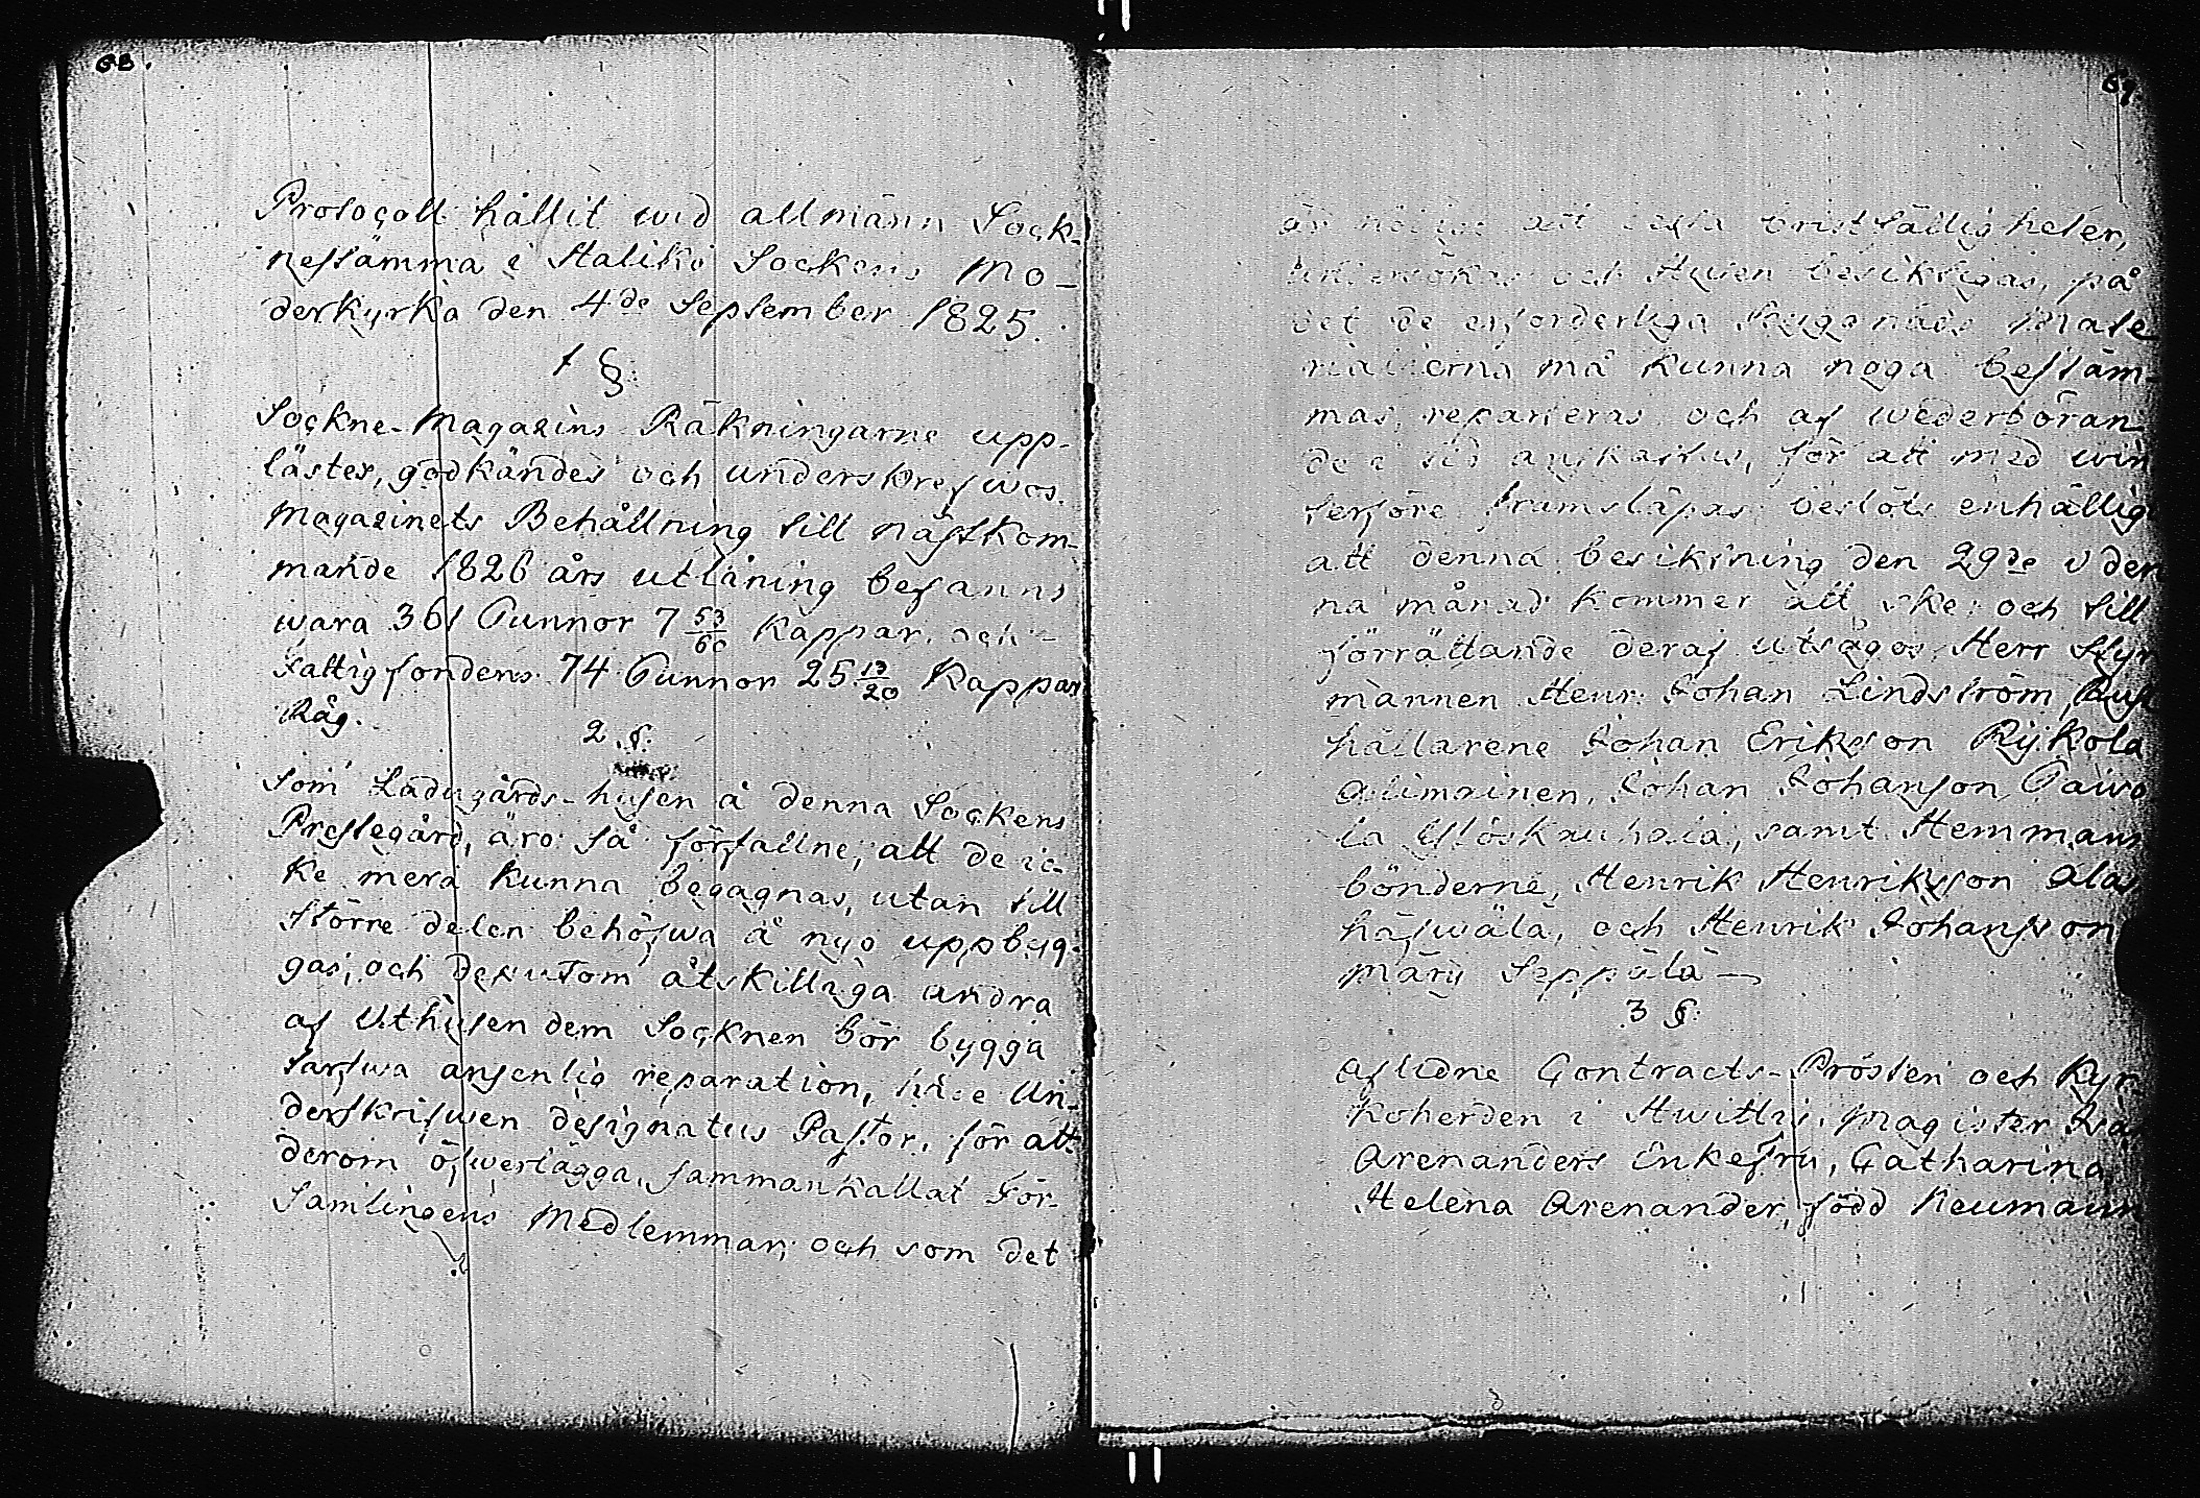 68.
Protocoll hållit wid allmänn Sock-
nestämma i Haliko Sockens Mo-
derkyrka den 4de September 1825.
1 §
Sockne-Magazins Räkningarne upp-
lästes, godkändes och underskrefwos.
Magazinets Behållning till nästkom-
mande 1826 års utlåning befanns
wara 361 Tunnor 7 53/60 Kappar, och
Fattigfondens 74 Tunnor 25 13/20 Kappar
Råg.
2 §.
Som Ladugårds-husen å denna Sockens
Prestegård, äro så förfallne, att de ic-
ke mera kunna begagnas, utan till
större delen behöfwa å nyo uppbyg-
gas, och dessutom åtskilliga andra
af Uthusen dem Socknen bör bygga
tarfwa ansenlig reparation, hade Un-
derskrifwen designatus Pastor, för att
derom öfwerlägga, sammankallat För-
samlingens Medlemmar, och som det
69.
är nödigt att dessa bristfälligheter,
undersökas och Husen besiktigas, på
det de erforderliga Byggnads Mate
rialierna må kunna noga bestäm-
mas, reparteras och af wederböran-
de i tid anskaffas, för att med win
terföre framsläpas, beslöts enhällig
att denna besiktning den 29de i den
na månad kommer att ske; och till
förrättande deraf utsågos Herr Styr
mannen Henr. Johan Lindström, Rust
hållarene Johan Eriksson Rijkola
Alimainen, Johan Johansson Taiwo
la samt Hemmans
bönderne, Henrik Henriksson Alas
häfwälä, och Henrik Johansson
Märy Seppälä —
3 §.
Aflidne Contracts-Prosten och Kyr
koherden i Hwittis, Magister
Arenanders Enkefru, Catharina
Helena Arenander, född Neumann